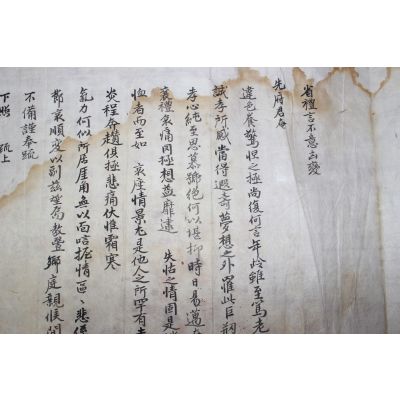 省禮言不意凶變
先府君奄
違色養驚怛之極尚復何言年齡雖至篤老
誠孝所感當得遐壽夢想之外罹此巨
孝心純至思慕號絕何以堪抑 時日易邁
襄禮哀痛罔極想益靡逮 失怙之情固是
者而至如 哀座情景尤是他人之所罕有
炎程奔趨俱極悲痛伏惟霜寒
氣力何似所居用無以面唁情區〻悲係
節哀順變以副玆望 鄉庭親候
不備謹奉疏
下照 疏上